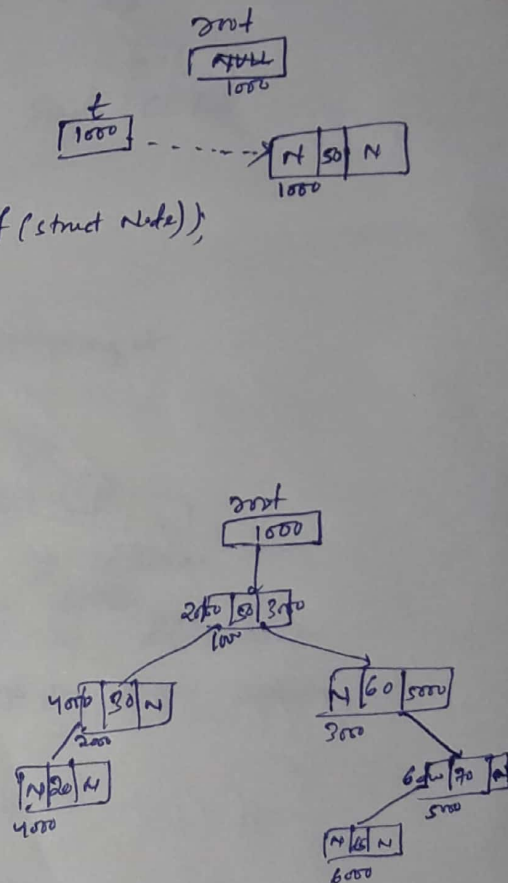 root
NULL
1000
t
1000
N 50 N
1000
f (struct Node));
root
1000
2000 50 3000
1000
4000 30 N
2000
N 60 5000
3000
N 20 N
4000
6000 70
5000
N 65 N
6000